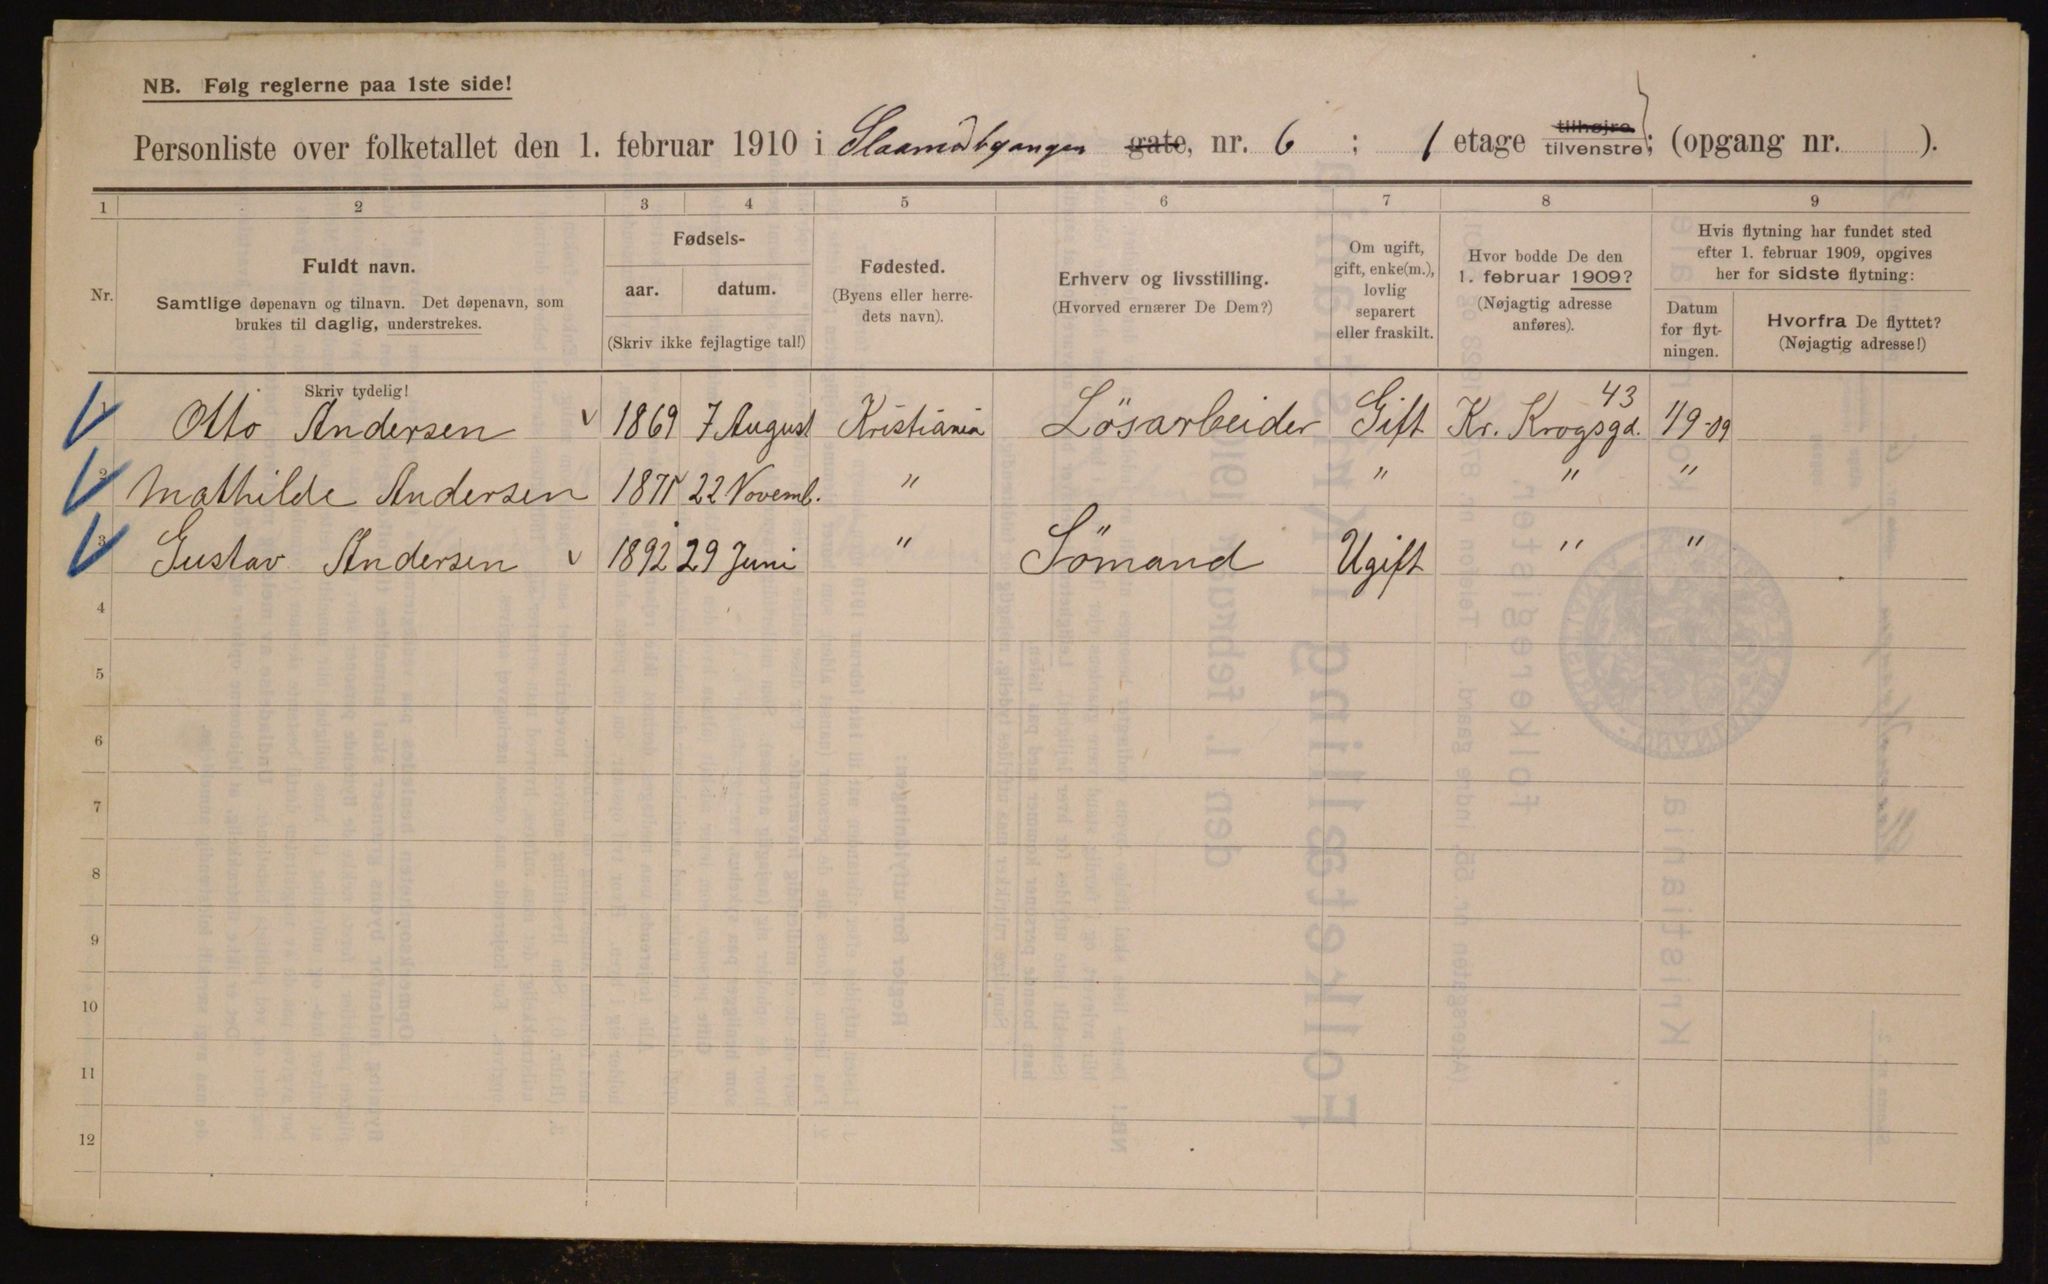 NB. Følg reglerne paa 1ste side!
Personliste over folketallet den 1. februar 1910 i gate, nr. 6 ; 1 etage tilhøjre tilvenstre ; (opgang nr. ).
1 2 3 4 5 6 7 8 9
Nr.
Fuldt navn.
Samtlige døpenavn og tilnavn. Det døpenavn, som
brukes til daglig, understrekes.
Fødsels-
aar. datum.
(Skriv ikke fejlagtige tal!)
Fødested.
(Byens eller herre-
dets navn).
Erhverv og livsstilling.
(Hvorved ernærer De Dem?)
Om ugift,
gift, enke(m.),
lovlig
separert
eller fraskilt.
Hvor bodde De den
1. februar 1909?
(Nøjagtig adresse
anføres).
Hvis flytning har fundet sted
efter 1. februar 1909, opgives
her for sidste flytning:
Datum
for flyt-
ningen.
Hvorfra De flyttet?
(Nøjagtig adresse!)
Skriv tydelig!
1 Otto Andersen v 1869 7 August Kristiania Lösarbeider Gift Kr. Krogsgd. 43 1/9-09
2 Mathilde Andersen 1871 22 Novemb. " " " "
3 Gustav Andersen v 1892 29 Juni " Sömand Ugift " "
4
5
6
7
8
9
10
11
12